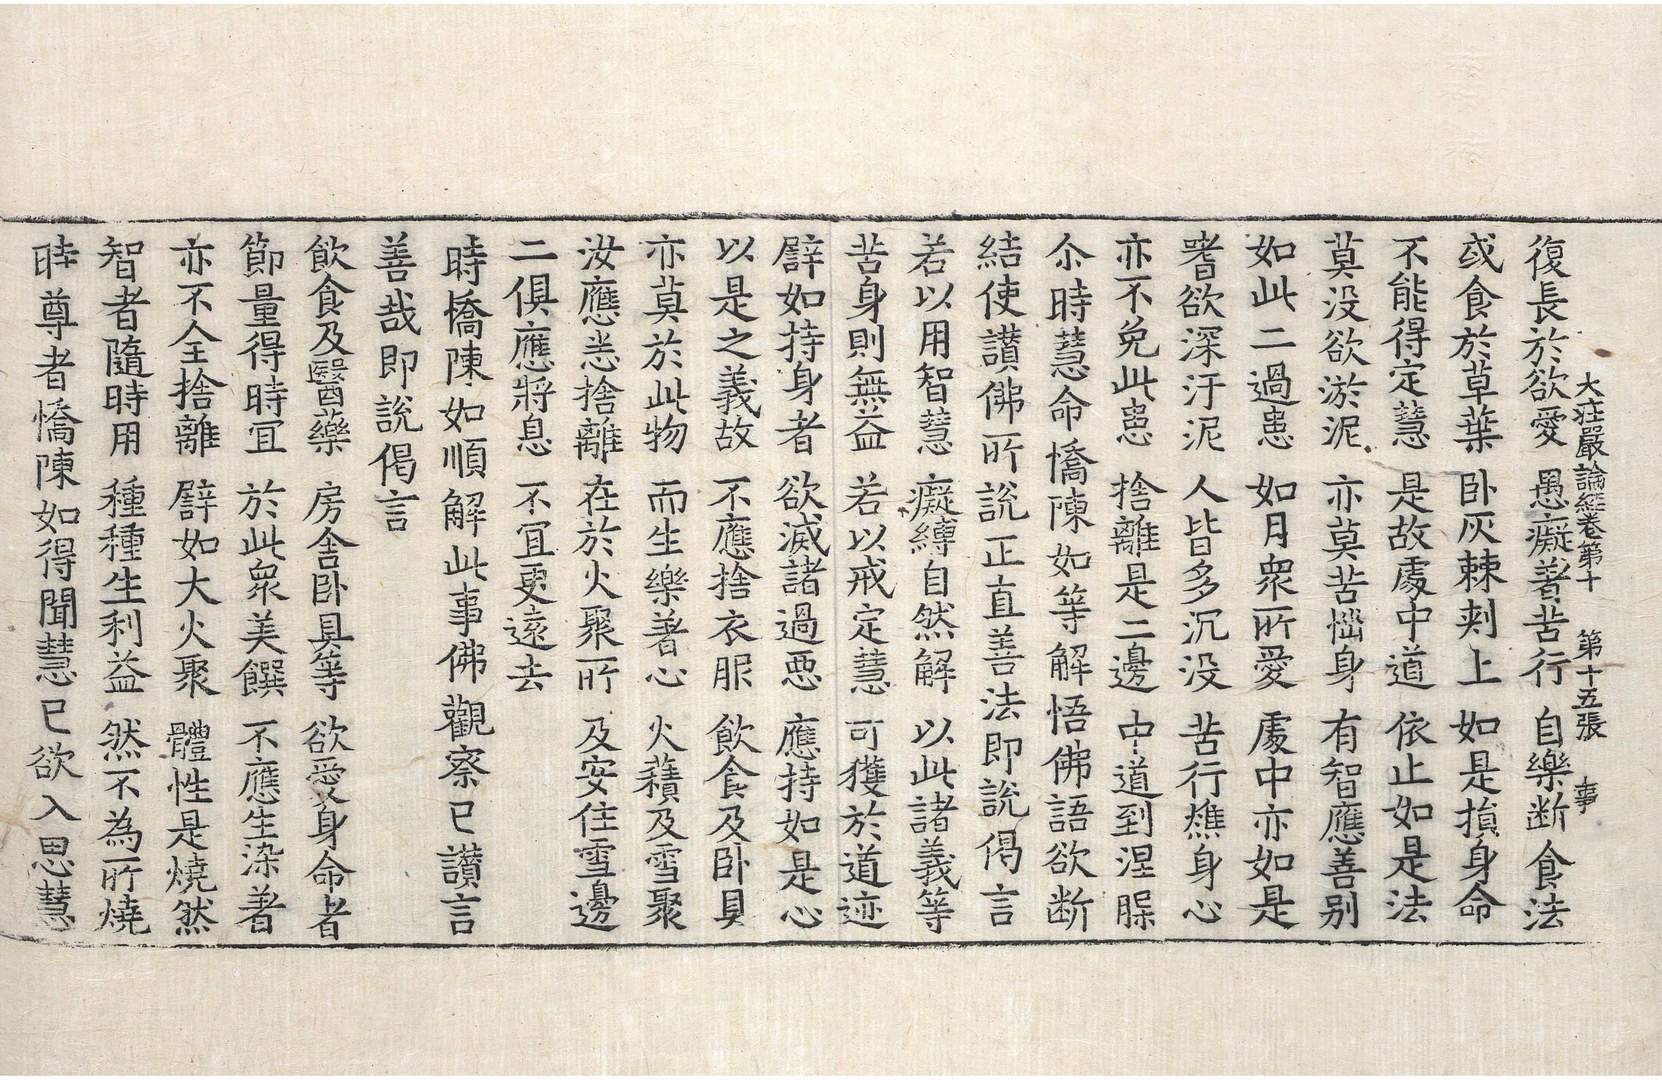 大莊嚴論經卷第十 第十五張 事
復長於欲愛 愚癡著苦行 自樂断食法
或食於草葉 卧灰棘刺上 如是損身命
不能得定慧 是故處中道 依止如是法
莫没欲淤泥 亦莫苦惱身 有智應善别
如此二過患 如月衆所愛 處中亦如是
嗜欲深汙泥 人皆多沉没 苦行燋身心
亦不免此患 捨離是二邊 中道到涅槃
尒時慧命憍陳如等解悟佛語欲断
結使讃佛所說正直善法即說偈言
若以用智慧 癡縛自然解 以此諸義等
苦身則無益 若以戒定慧 可獲於道迹
譬如持身者 欲滅諸過惡 應持如是心
以是之義故 不應捨衣服 飲食及卧具
亦莫於此物 而生樂著心 火積及雪聚
汝應悉捨離 在於火聚所 及安住雪邊
二俱應將息 不冝更遠去
時憍陳如順解此事佛觀察已讃言
善哉即說偈言
飲食及醫藥 房舍卧具等 欲愛身命者
節量得時冝 於此衆美饌 不應生染著
亦不全捨離 譬如大火聚 體性是燒然
智者隨時用 種種生利益 然不為所燒
時尊者憍陳如得聞慧已欲入思慧